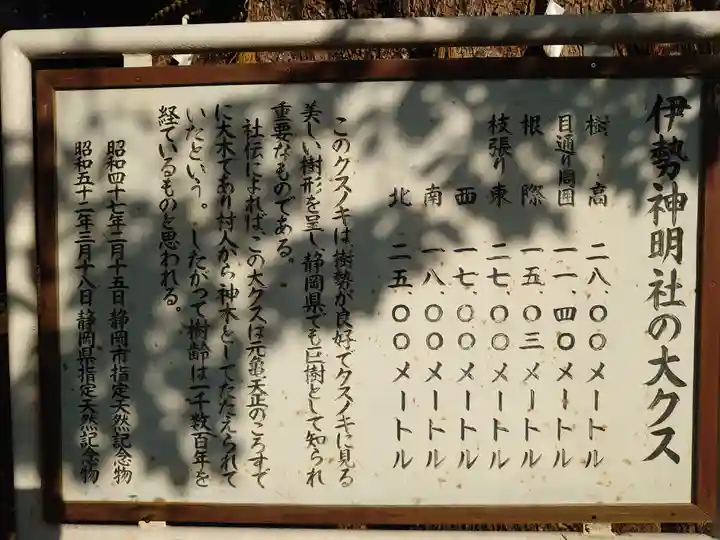 伊勢神明社の大クス
樹高 二八、〇〇メートル
目通り周囲 一一、四〇メートル
根際 一五、〇三メートル
枝張り東 二七、〇〇メートル
西 一七、〇〇メートル
南 一八、〇〇メートル
北 二五、〇〇メートル
このクスノキは、樹勢が良好でクスノキに見る
美しい樹形を呈し、静岡県でも巨樹として知られ
重要なものである。
社伝によれば、この大クスは元亀天正のころすで
に大木であり村人から神木としてたたえられて
いたという。したがって樹齢は一千数百年を
経ているものと思われる。
昭和四十七年二月十五日 静岡市指定天然記念物
昭和五十二年三月十八日 静岡県指定天然記念物